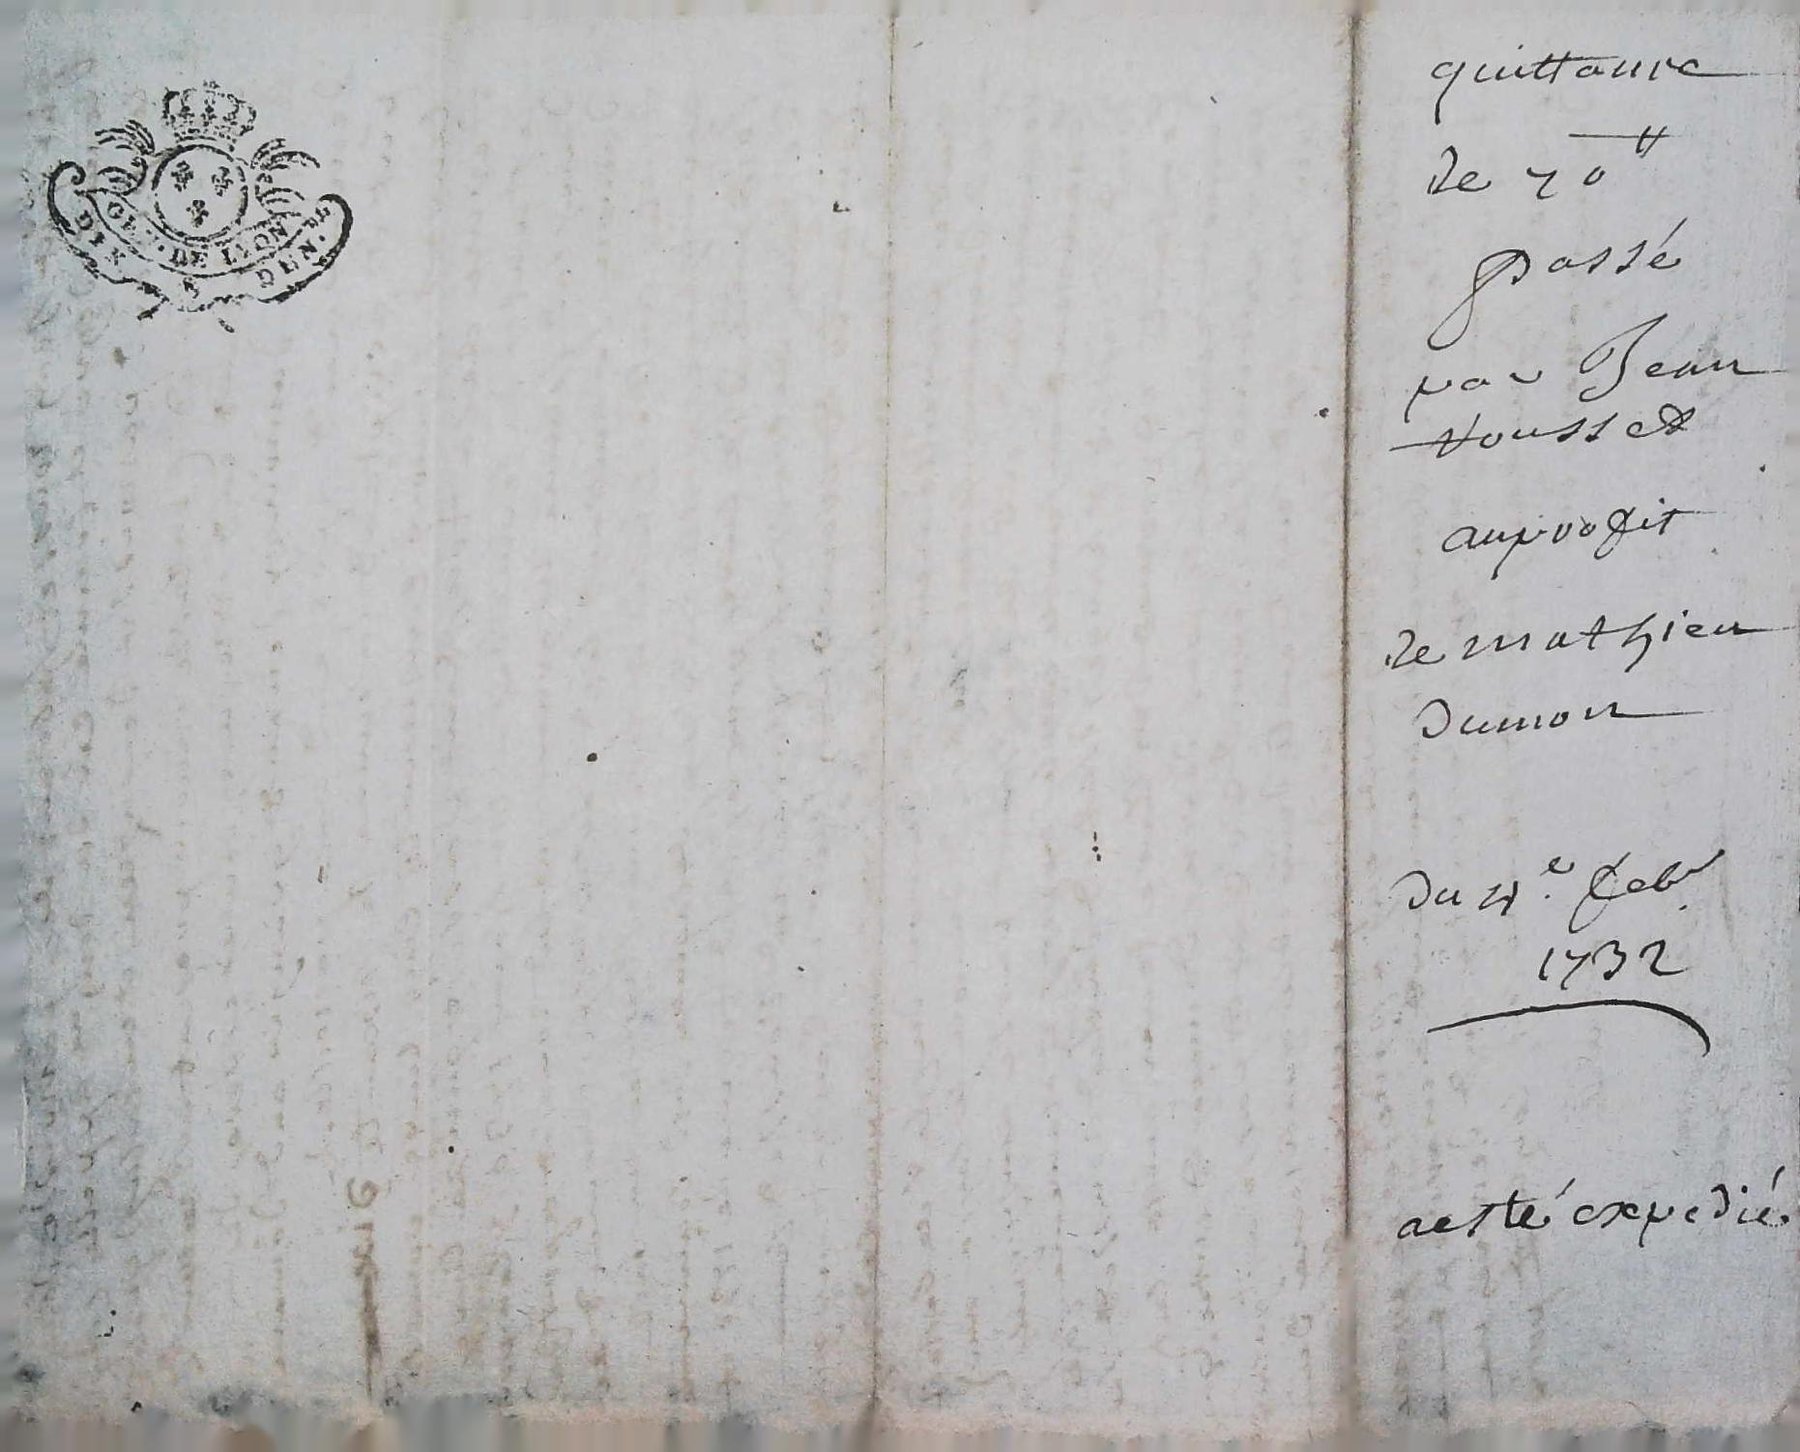 GEN. DE LION
quittance
de 70 ₶
passé
par Jean
Housset
au profit
de mathieu
Dumon
Du 4e. feb.
1732
a esté expedié